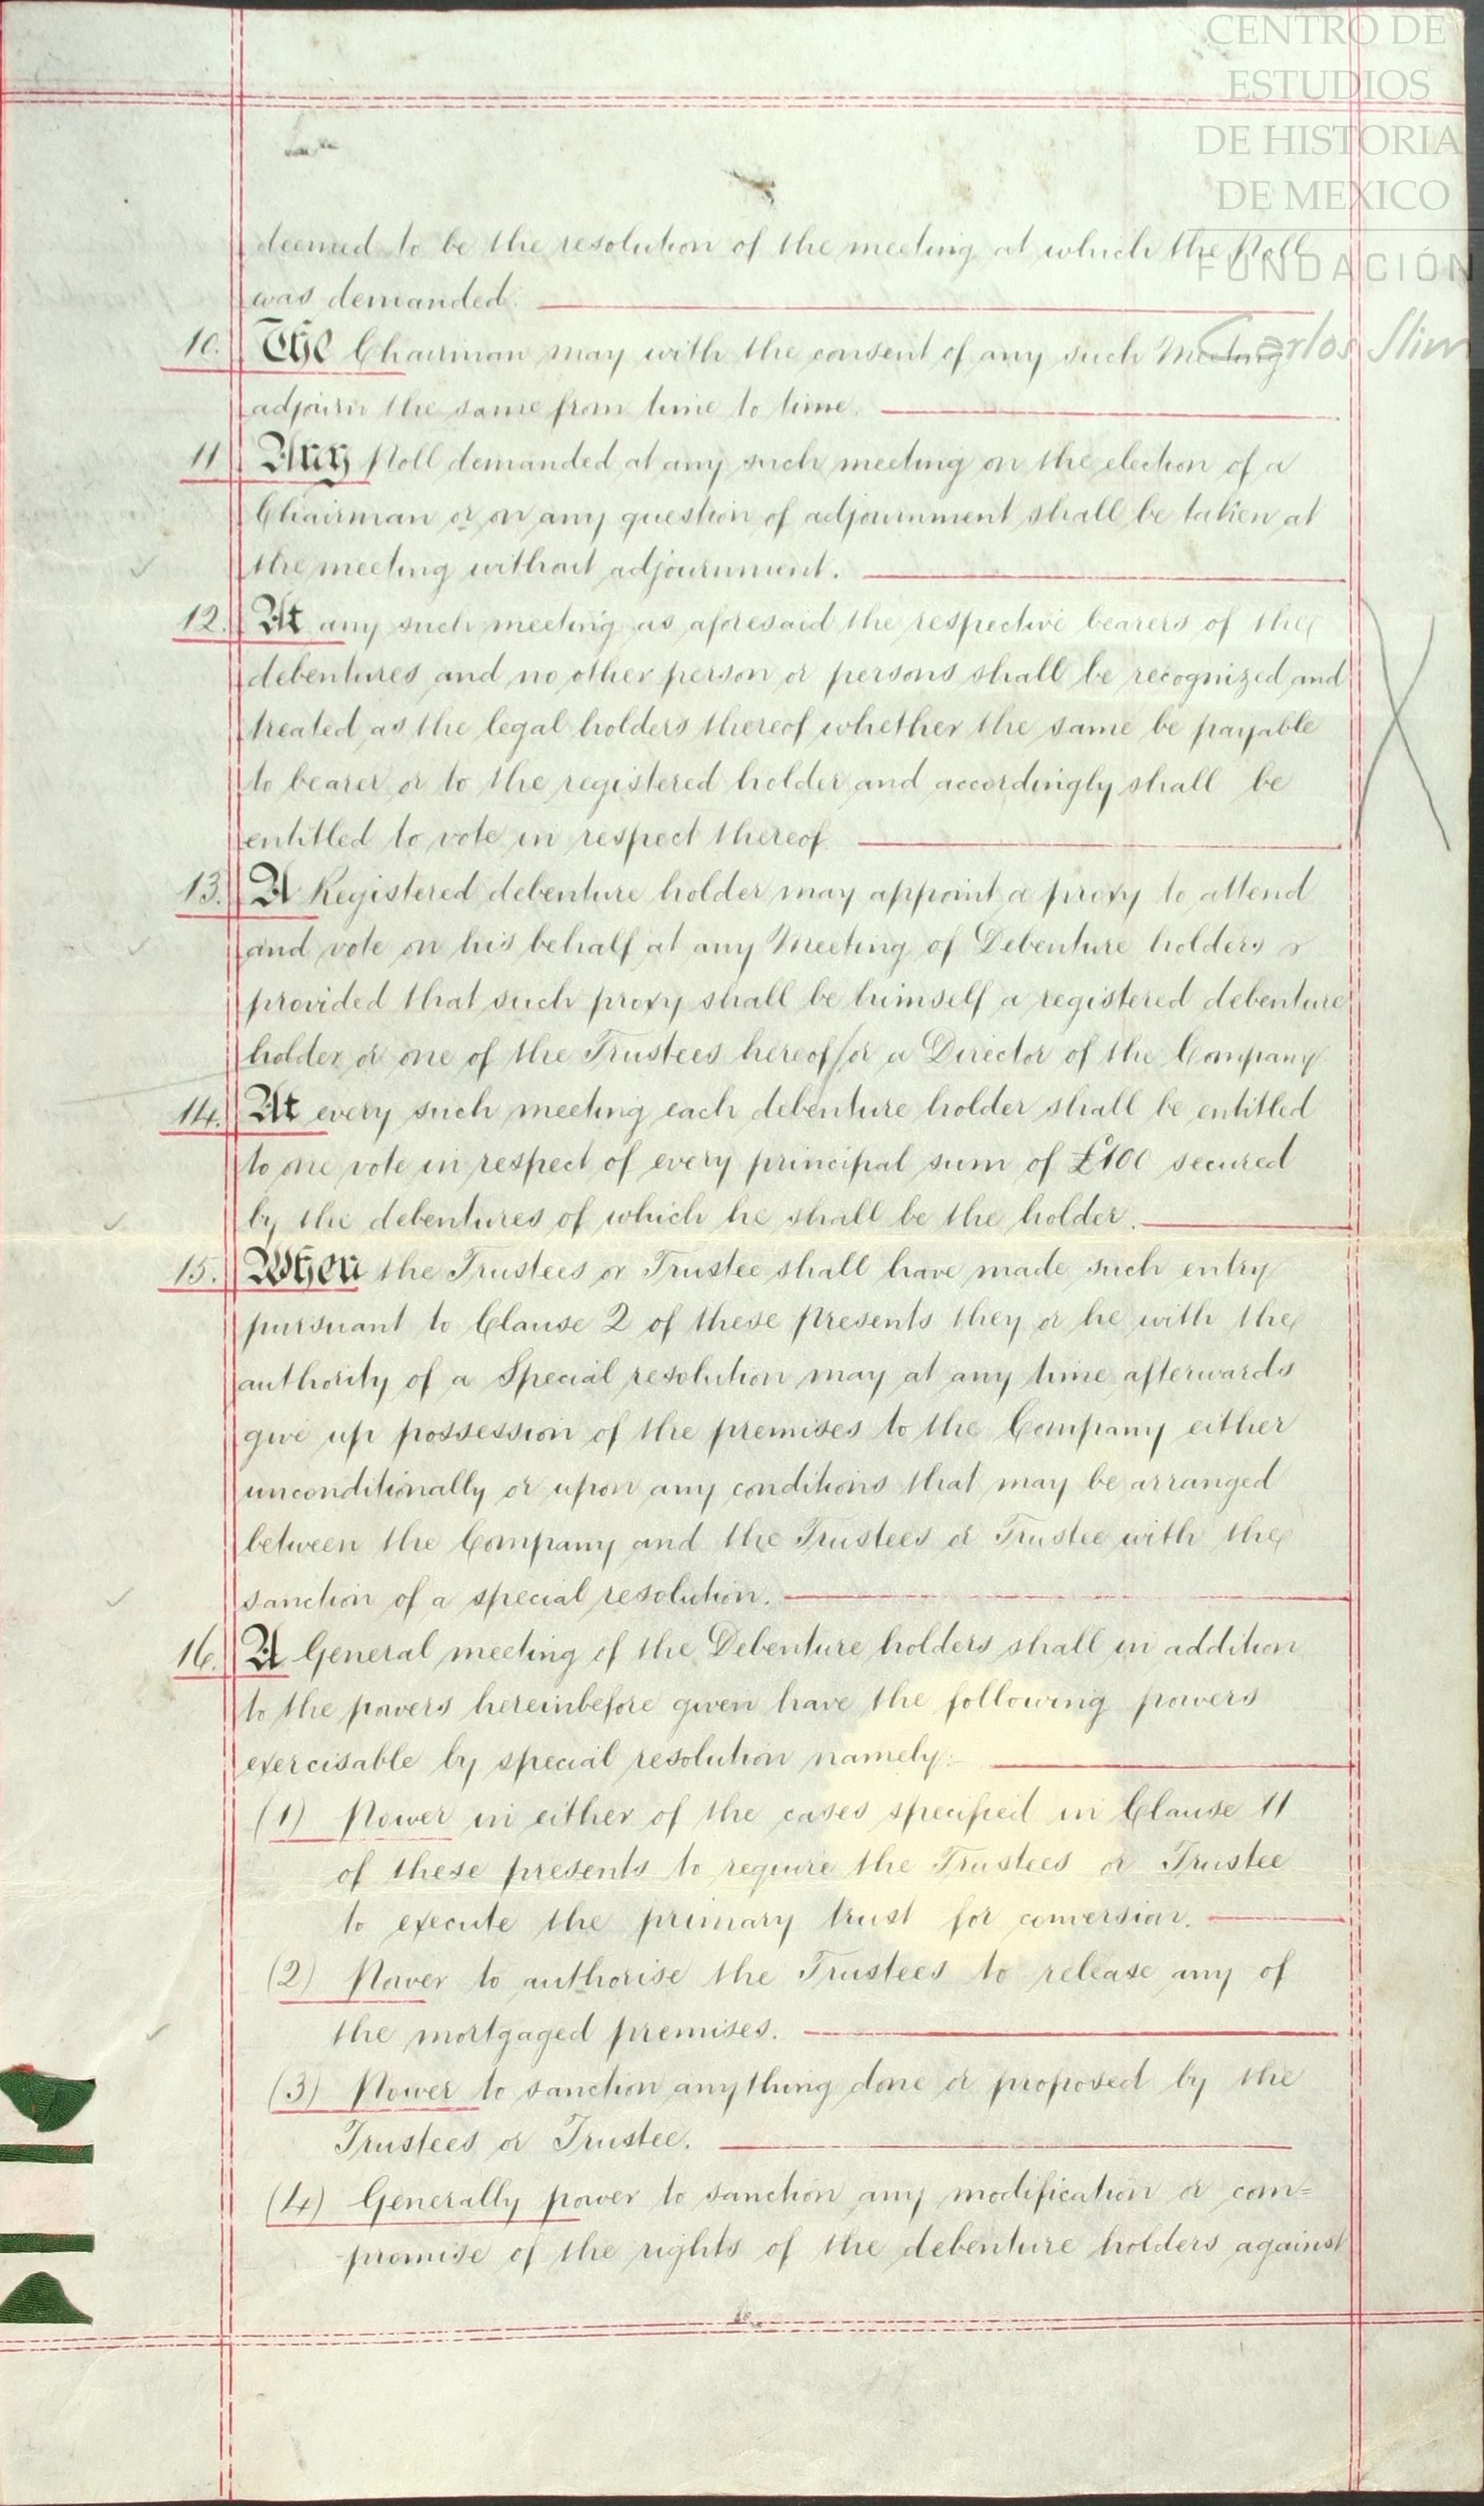 CENTRO DE
ESTUDIOS
DE HISTORIA
DE MEXICO
FUNDACIÓN
Carlos Slim
deemed to be the resolution of the meeting at which the Poll
was demanded.
10. The Chairman may with the consent of any such Meeting
adjourn the same from time to time.
11 Any Poll demanded at any such meeting on the election of a
Chairman or on any question of adjournment shall be taken at
the meeting without adjournment.
12. At any such meeting as aforesaid the respective bearers of the
debentures and no other person or persons shall be recognized and
treated as the legal holders thereof whether the same be payable
to bearer or to the registered holder and accordingly shall be
entitled to vote in respect thereof
13. A Registered debenture holder may appoint a proxy to attend
and vote on his behalf at any Meeting of Debenture holders
provided that such proxy shall be himself a registered debenture
holder or one of the Trustees hereof/or a Director of the Company
14. At every such meeting each debenture holder shall be entitled
to one vote in respect of every principal sum of £100 secured
by the debentures of which he shall be the holder.
15. When the Trustees or Trustee shall have made such entry
pursuant to Clause 2 of these presents they or he with the
authority of a Special resolution may at any time afterwards
give up possession of the premises to the Company either
unconditionally or upon any conditions that may be arranged
between the Company and the Trustees or Trustee with the
sanction of a special resolution.
16. A General meeting of the Debenture holders shall in addition
to the powers hereinbefore given have the following powers
exercisable by special resolution namely:-
(1) Power in either of the cases specified in Clause 11
of these presents to require the Trustees or Trustee
to execute the primary trust for conversion.
(2) Power to authorise the Trustees to release any of
the mortgaged premises.
(3) Power to sanction anything done or proposed by the
Trustees or Trustee.
(4) Generally power to sanction any modification or com=
promise of the rights of the debenture holders against